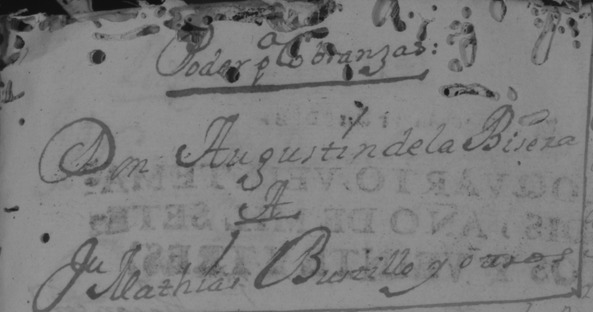 Poder pa Cobranzas:
Don Augustin de la Bisera
A
Ju Mathias Burillo y otros